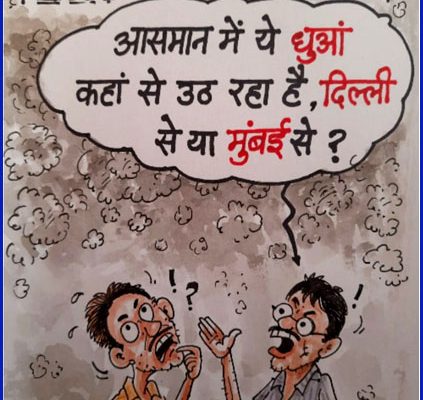 आसमान में ये धुआं
कहां से उठ रहा है, दिल्ली
से या मुंबई से ?
! ?
!